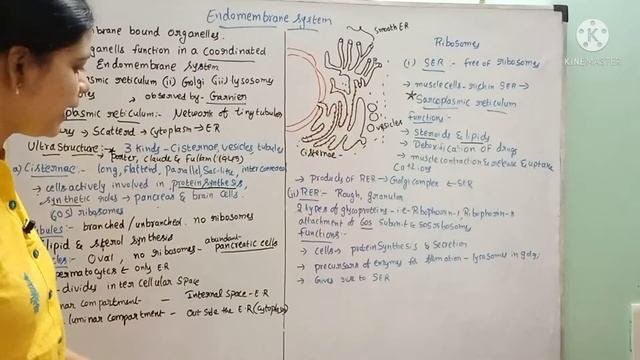 Endomembrane system
membrane bound organelles.
organells function in a coordinated
Endomembrane system
reticulum (ii) Golgi (iii) lysosomy
→ observed by - Garnier
reticulum :- Network of tiny tubules
→ Scatterd → cytoplasm → ER
Ultra structure :- * 3 kinds - Cisternae, vesicles, tubules
→ Porter, Claude & Fullam (1945)
a) Cisternae :- long, flattetd, Parallel, Sac-like, interconnected
→ cells actively involved in protein synthesis,
synthetic roles → pancreas & brain cells.
60S) ribosomes
branched / unbranched. no ribosomes
lipid & sterol synthesis
Oval, no ribosomes - abundant - pancreatic cells
Spermatocytes ← only ER
divides inter cellular space
compartment - Internal space - E.R
luminar compartment - Out side the E.R (cytoplasm)
smooth ER
vesicles
Cisternae -
Ribosomes
(i) SER :- free of ribosomes
→ muscle cells - rich in SER →
* Sarcoplasmic reticulum
functions :-
→ Steroids & lipids
→ Detoxification of drugs
→ muscle contraction & release & uptake
Ca+ ions
→ products of RER → Golgi complex ← SER
(ii) RER :- Rough, granular
2 types of glycoproteins - i.e - Ribophorin-I, Ribophorin-II
attachment of 60S subunit & 80S ribosomes
Functions :-
→ cells → protein synthesis & secretion
→ precursors of enzymes for formation - lysosomes in golgi
→ Gives rise to SER
KINEMASTER